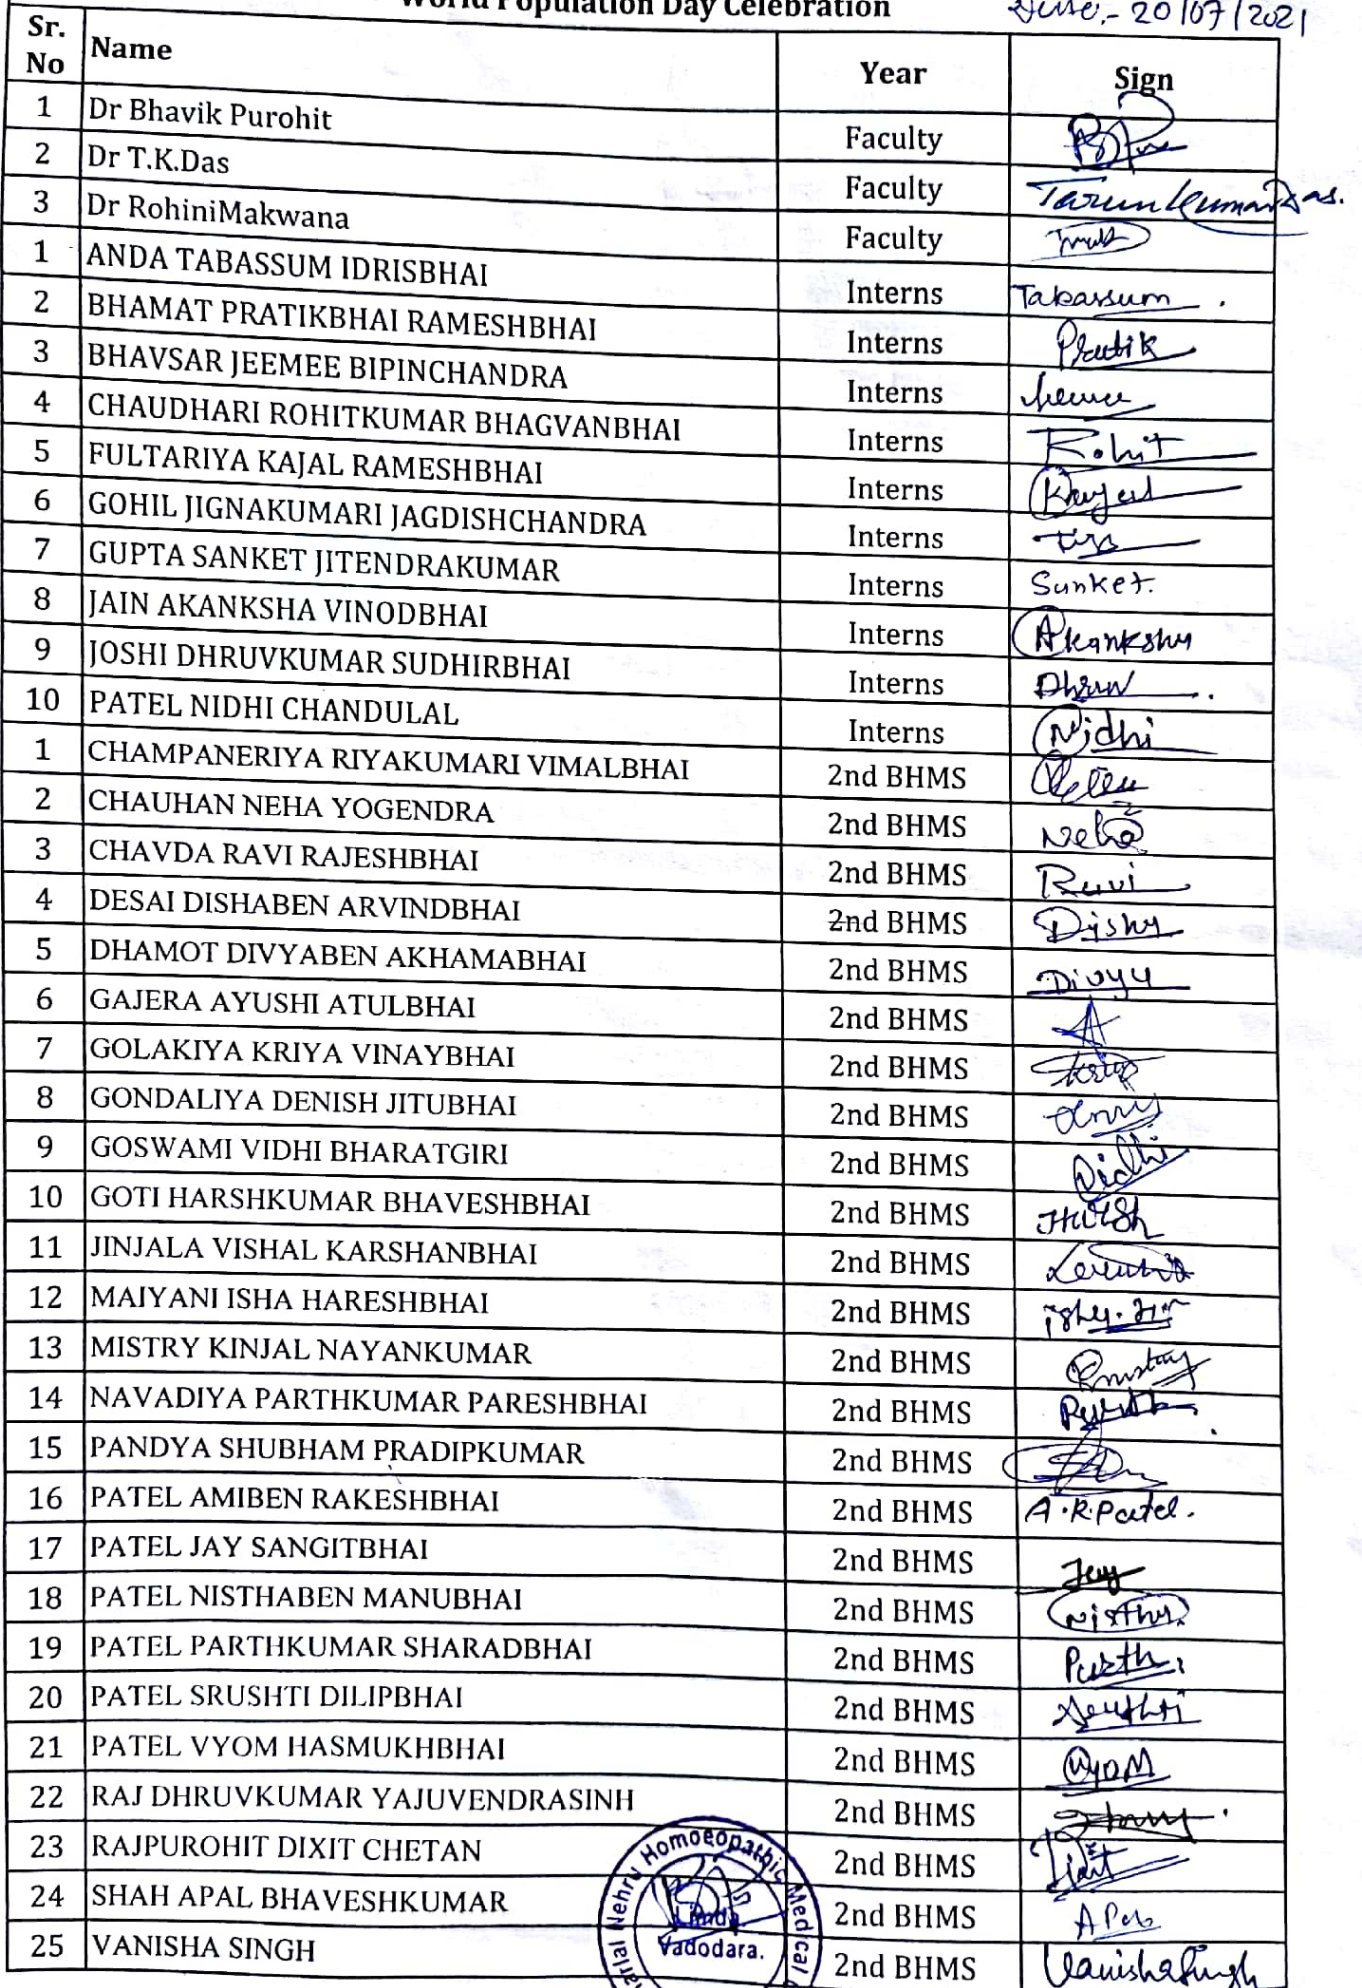 World Population Day Celebration
Date:- 20/07/2021
Sr. No Name Year Sign
1 Dr Bhavik Purohit Faculty
2 Dr T.K.Das Faculty Tarun Kumar Das.
3 Dr RohiniMakwana Faculty
1 ANDA TABASSUM IDRISBHAI Interns Tabassum
2 BHAMAT PRATIKBHAI RAMESHBHAI Interns Pratik
3 BHAVSAR JEEMEE BIPINCHANDRA Interns
4 CHAUDHARI ROHITKUMAR BHAGVANBHAI Interns Rohit
5 FULTARIYA KAJAL RAMESHBHAI Interns
6 GOHIL JIGNAKUMARI JAGDISHCHANDRA Interns
7 GUPTA SANKET JITENDRAKUMAR Interns Sanket.
8 JAIN AKANKSHA VINODBHAI Interns Akanksha
9 JOSHI DHRUVKUMAR SUDHIRBHAI Interns Dhruv
10 PATEL NIDHI CHANDULAL Interns Nidhi
1 CHAMPANERIYA RIYAKUMARI VIMALBHAI 2nd BHMS
2 CHAUHAN NEHA YOGENDRA 2nd BHMS Neha
3 CHAVDA RAVI RAJESHBHAI 2nd BHMS Ravi
4 DESAI DISHABEN ARVINDBHAI 2nd BHMS Disha
5 DHAMOT DIVYABEN AKHAMABHAI 2nd BHMS Divya
6 GAJERA AYUSHI ATULBHAI 2nd BHMS A
7 GOLAKIYA KRIYA VINAYBHAI 2nd BHMS
8 GONDALIYA DENISH JITUBHAI 2nd BHMS
9 GOSWAMI VIDHI BHARATGIRI 2nd BHMS Vidhi
10 GOTI HARSHKUMAR BHAVESHBHAI 2nd BHMS Harsh
11 JINJALA VISHAL KARSHANBHAI 2nd BHMS
12 MAIYANI ISHA HARESHBHAI 2nd BHMS
13 MISTRY KINJAL NAYANKUMAR 2nd BHMS
14 NAVADIYA PARTHKUMAR PARESHBHAI 2nd BHMS
15 PANDYA SHUBHAM PRADIPKUMAR 2nd BHMS
16 PATEL AMIBEN RAKESHBHAI 2nd BHMS A.R.Patel.
17 PATEL JAY SANGITBHAI 2nd BHMS Jay
18 PATEL NISTHABEN MANUBHAI 2nd BHMS Nistha
19 PATEL PARTHKUMAR SHARADBHAI 2nd BHMS Parth
20 PATEL SRUSHTI DILIPBHAI 2nd BHMS
21 PATEL VYOM HASMUKHBHAI 2nd BHMS Vyom
22 RAJ DHRUVKUMAR YAJUVENDRASINH 2nd BHMS
23 RAJPUROHIT DIXIT CHETAN 2nd BHMS
24 SHAH APAL BHAVESHKUMAR 2nd BHMS Apal
25 VANISHA SINGH 2nd BHMS Vanisha Singh
Nehru Homoeopathic Medical
Limda
Vadodara.